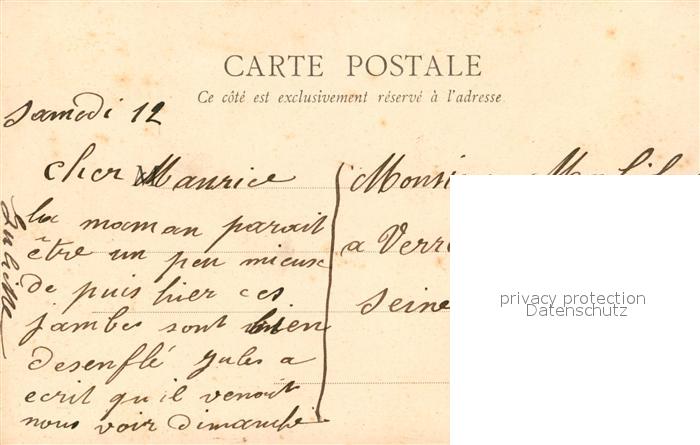 CARTE POSTALE
Ce côté est exclusivement réservé à l'adresse
Samedi 12
Cher Maurice
la maman parait
être un peu mieux
de puis hier ces
jambes sont bien
desenflé Jules a
ecrit qu'il venait
nous voir dimanche
Monsi
a Verr
Seine
privacy protection
Datenschutz